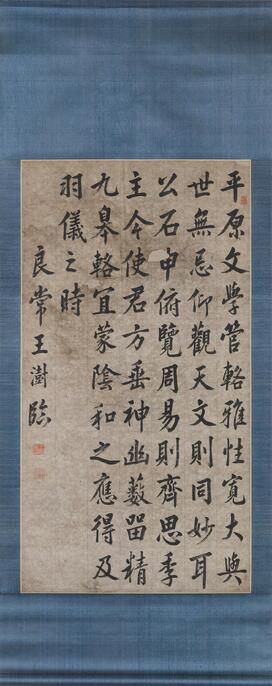 平原文學管輅雅性寬大與
世無忌仰觀天文則同妙耳
公石申俯覽周易則齊思季
主今使君方垂神幽藪留精
九皋輅宜蒙陰和之應得及
羽儀之時
良常王澍臨